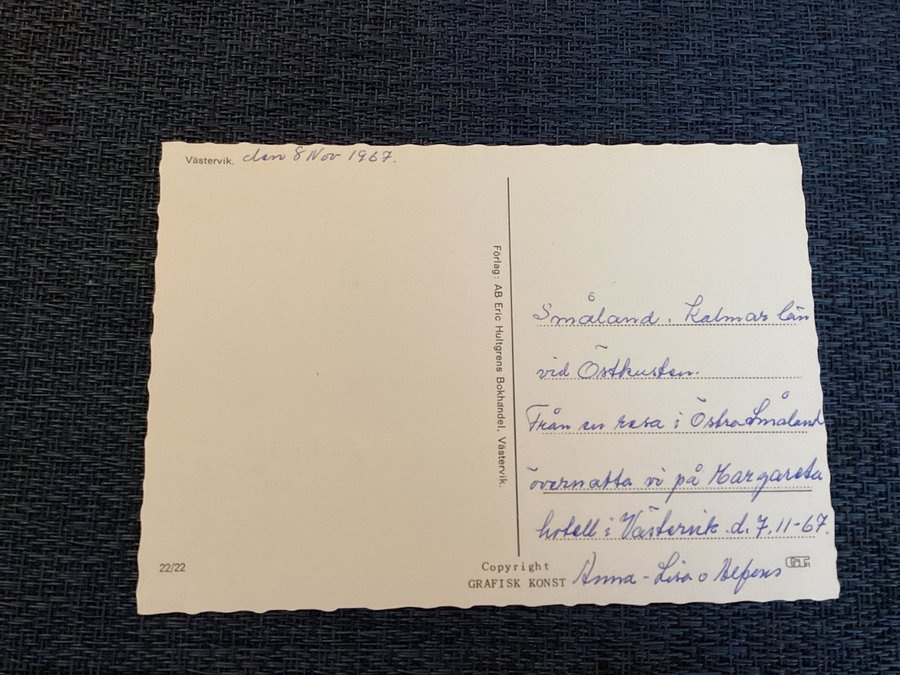 Västervik. den 8 Nov 1967.
Förlag: AB Eric Hultgrens Bokhandel, Västervik.
Småland. Kalmar län
vid Östkusten.
Från en resa i Östra Småland
övernatta vi på Margareta
hotell i Västervik d. 7.11-67.
Anna-Lisa o
22/22
Copyright
GRAFISK KONST